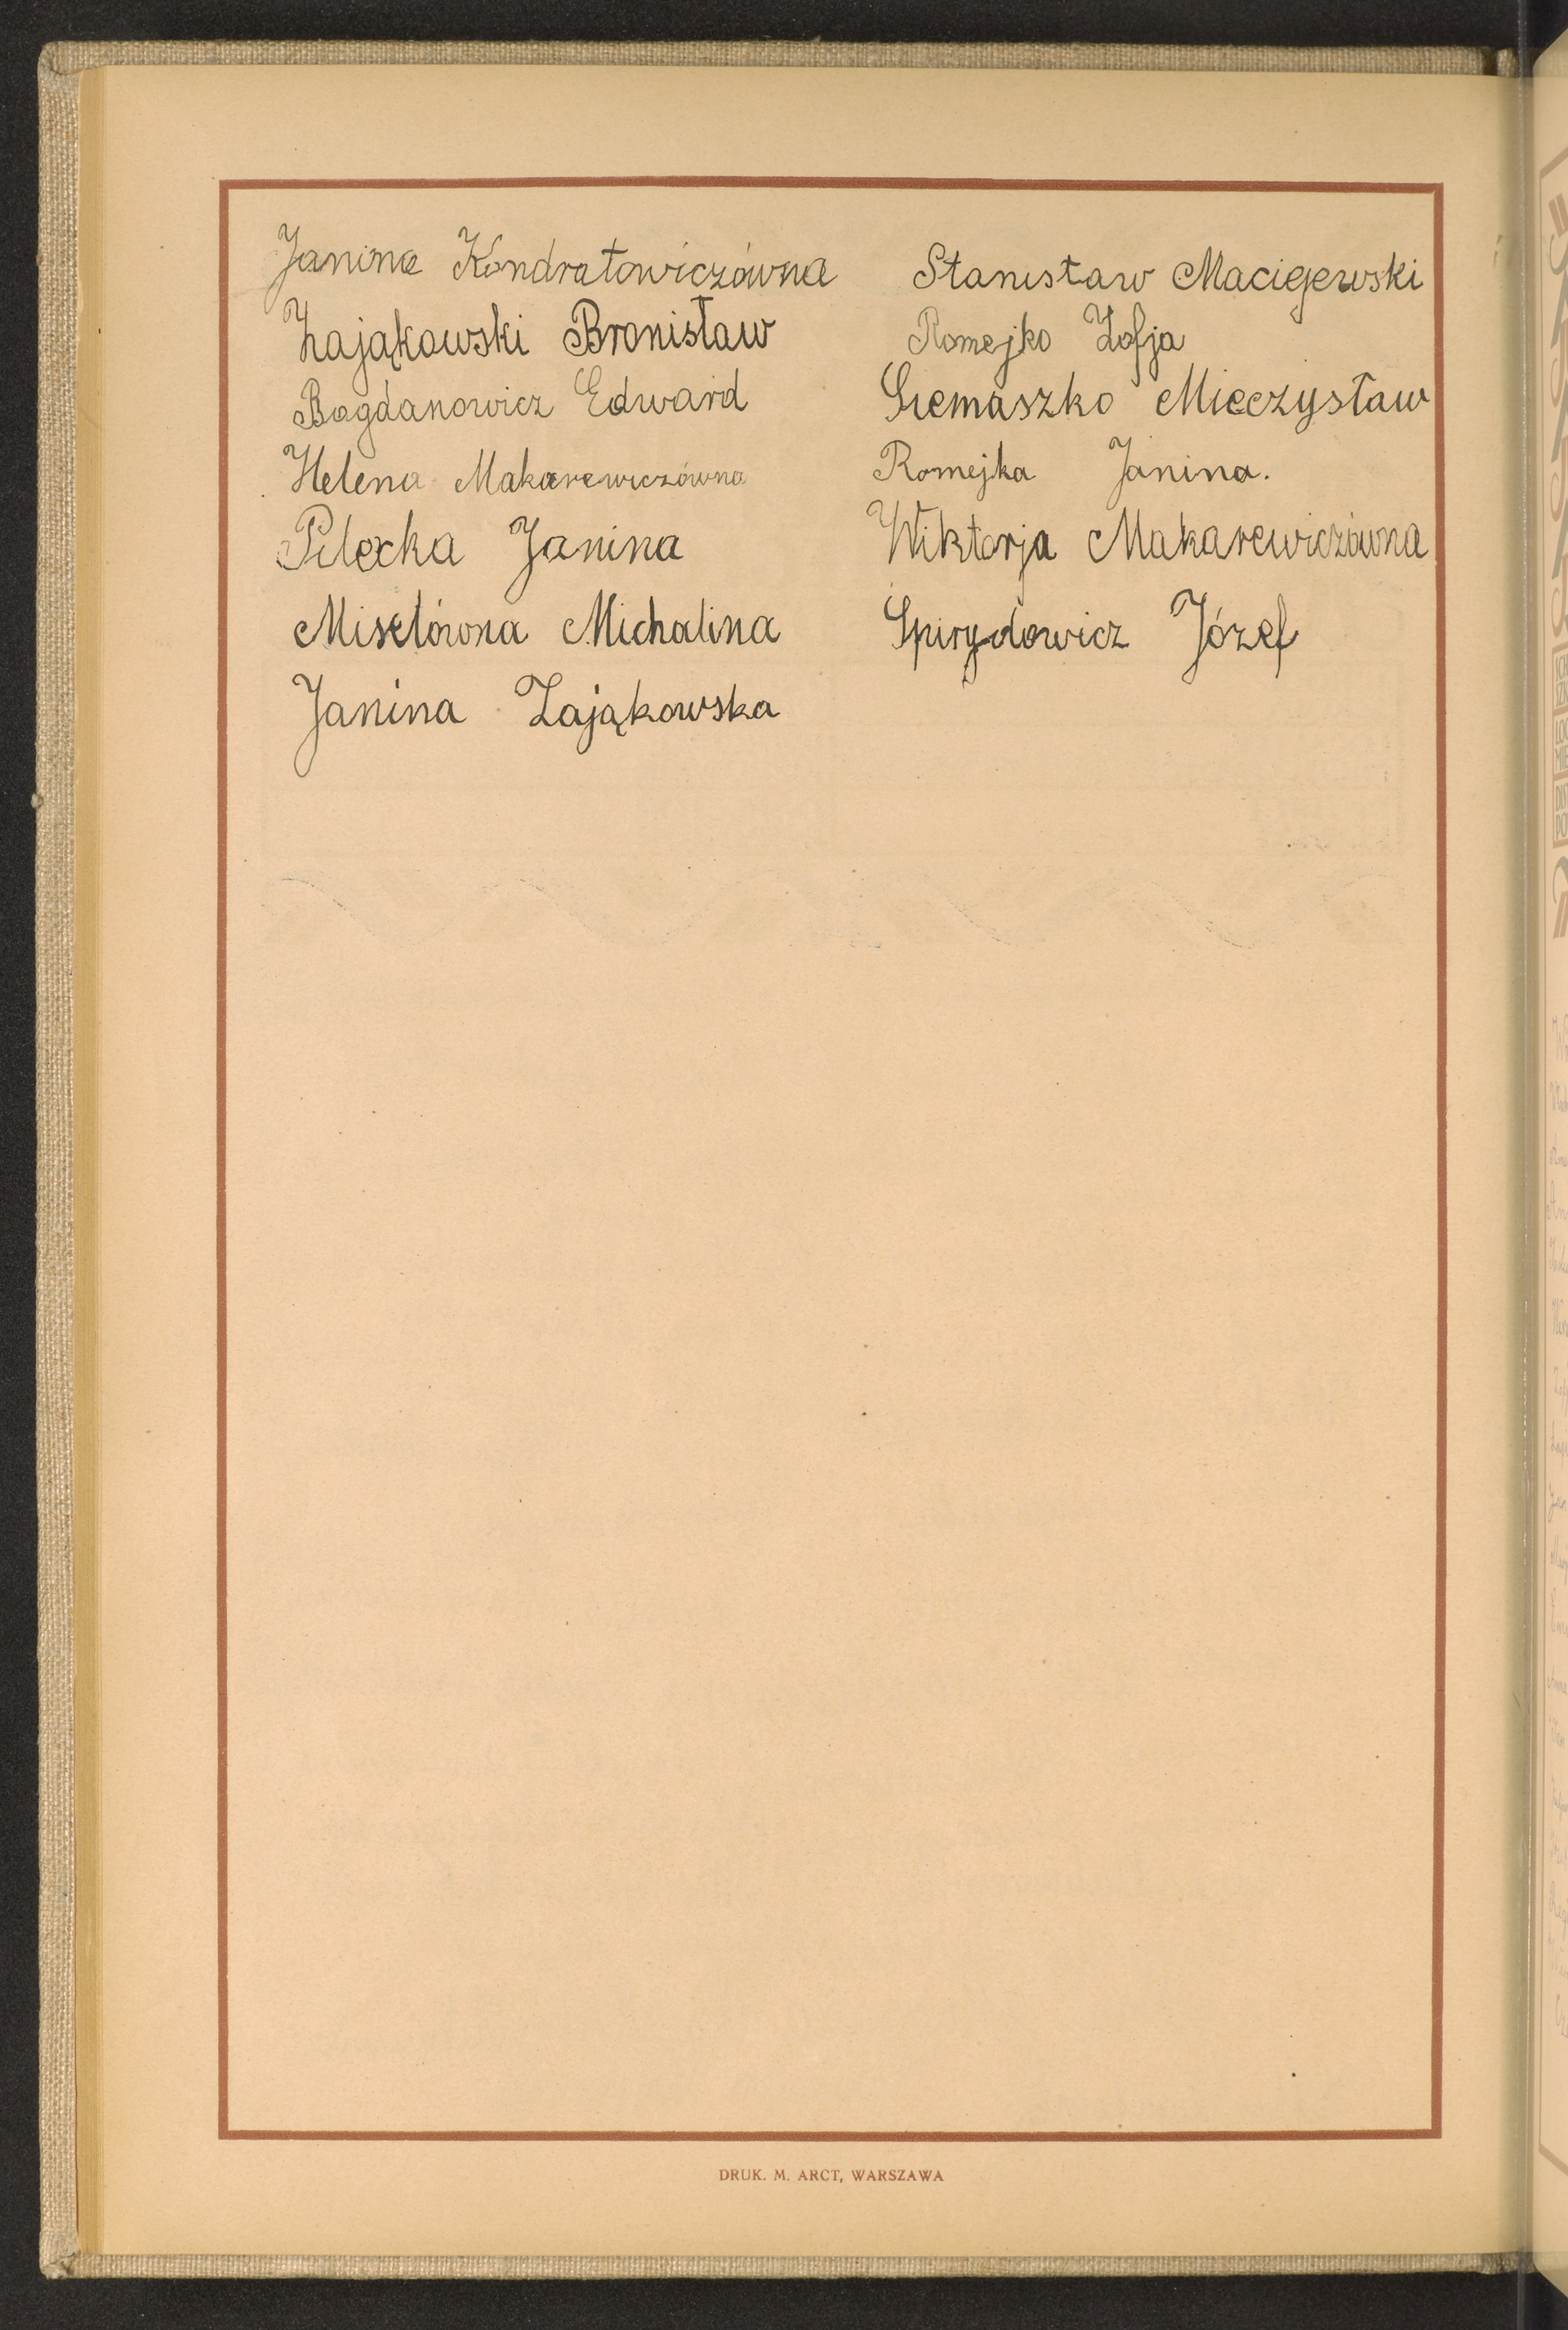 Janina Kondratowiczówna
Zająkowski Bronisław
Bogdanowicz Edward
Helena Makarewiczówna
Pilecka Janina
Miselówna Michalina
Janina Zająkowska
Stanisław Maciejewski
Romejko Zofja
Siemaszko Mieczysław
Romejka Janina.
Wiktorja Makarewiczówna
Spirydowicz Józef
DRUK. M. ARCT, WARSZAWA